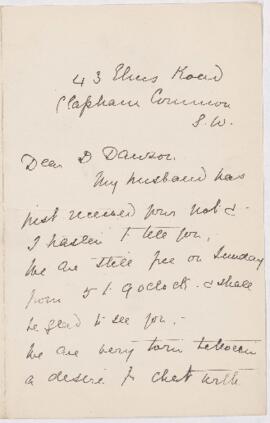 43 Elms Road
Clapham Common
S.W.
Dear D Dawson.
My husband has
just received your note &
I hasten to tell you,
We are still free on Sunday
from 5 to 9 o'clock. & shall
be glad to see you. -
We are very torn between
a desire to chat with